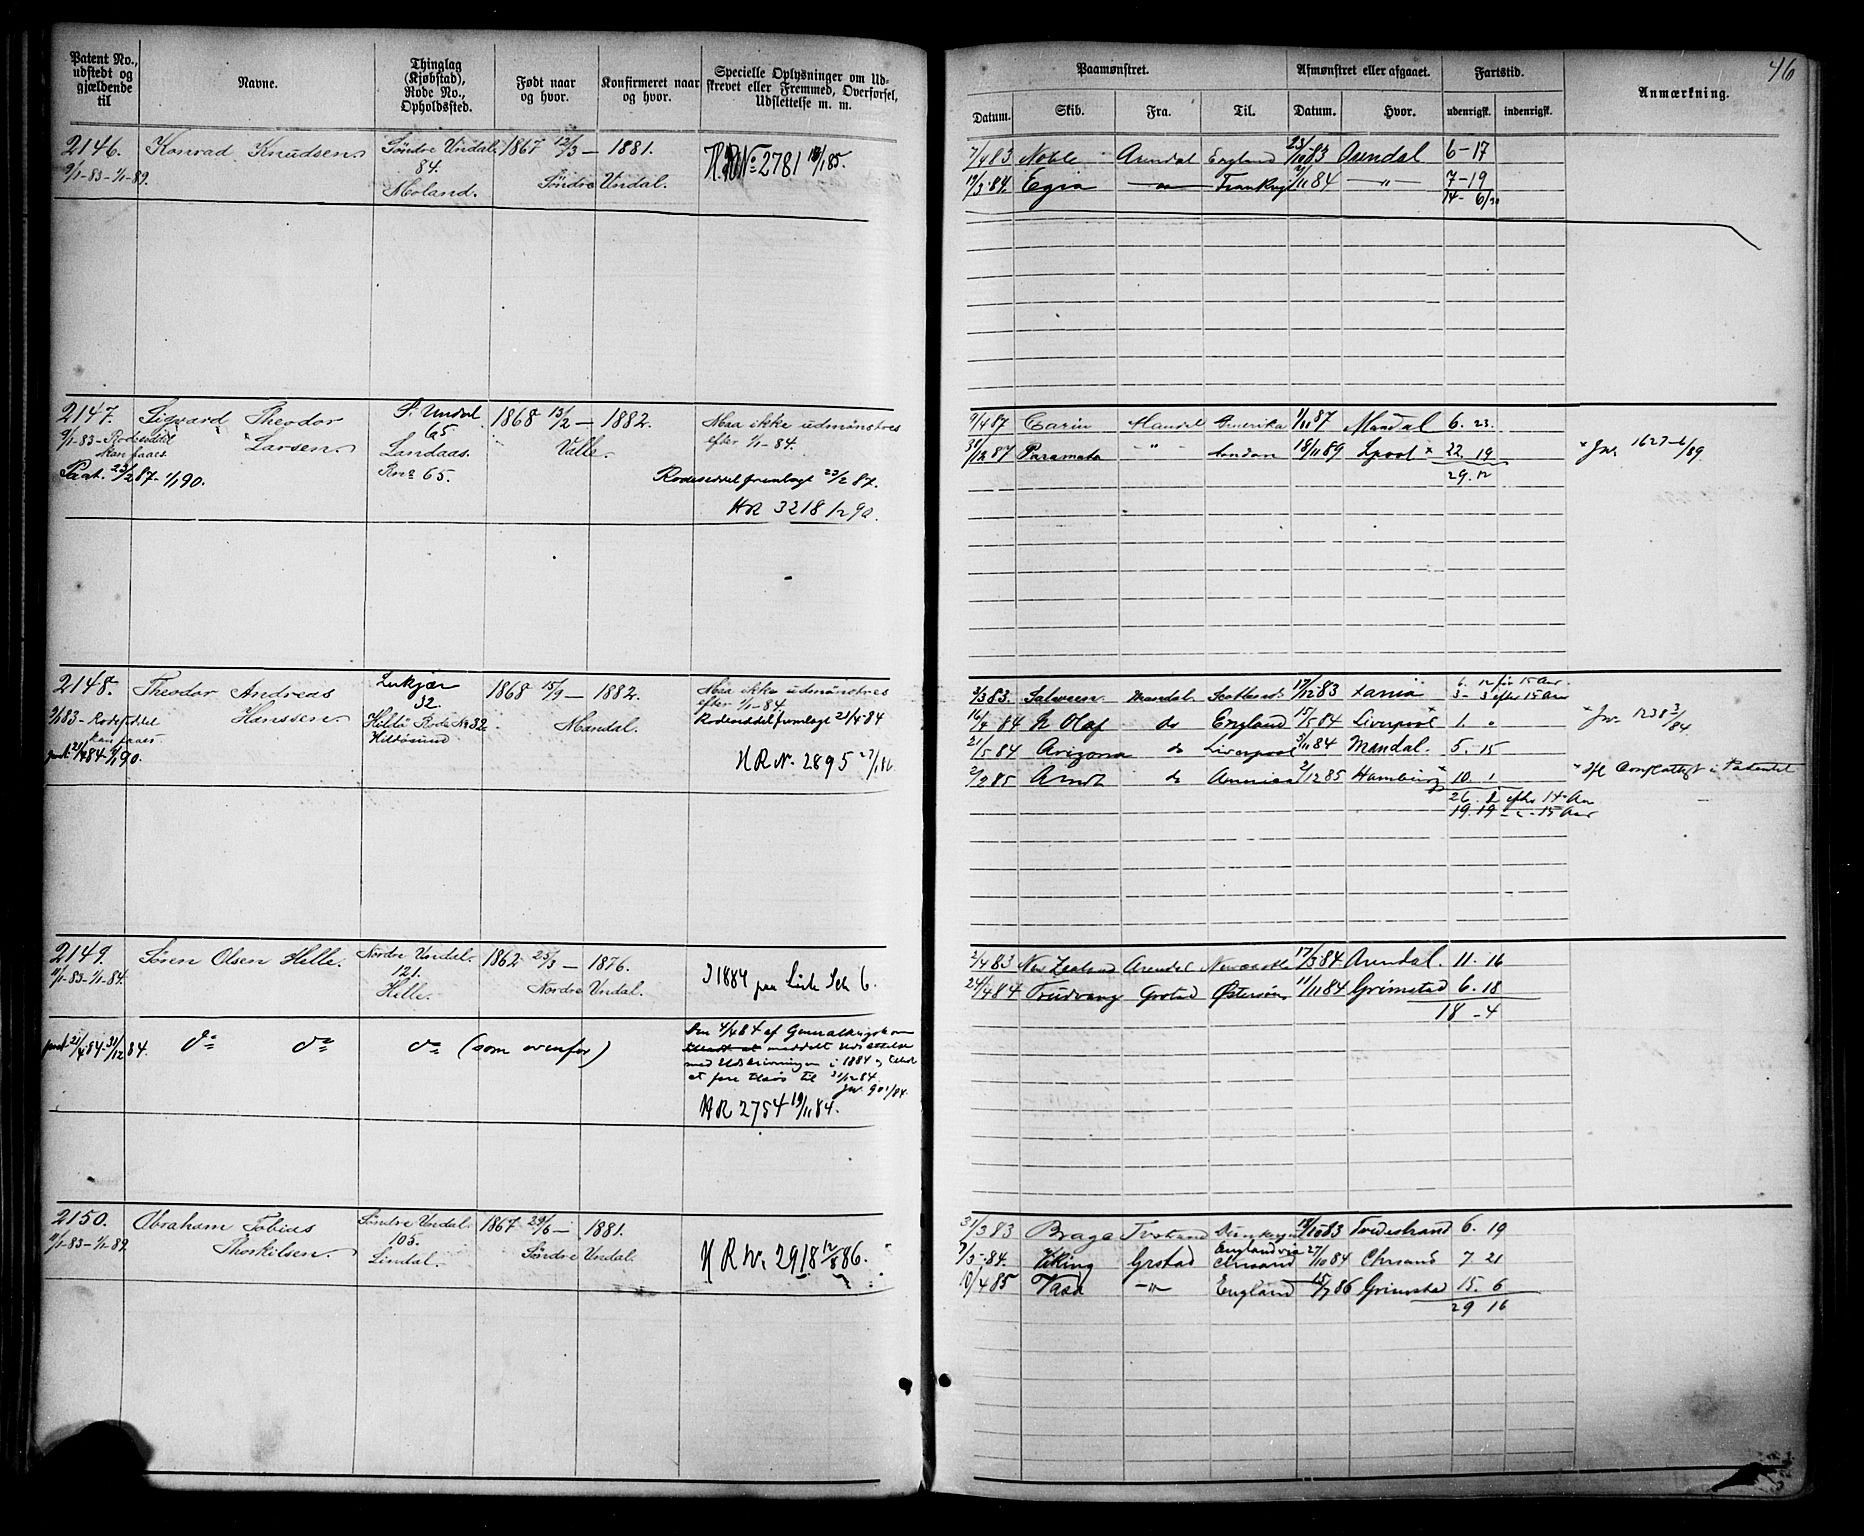 Patent No., udstedt og gjældende til
Navne.
Thinglag (Kjøbstad), Rode No., Opholdssted.
Født naar og hvor.
Konfirmeret naar og hvor.
Specielle Oplysninger om Udskrevet eller Fremmed, Overførsel, Udslettelse m. m.
Paamønstret.
Afmønstret eller afgaaet.
Fartstid.
Anmærkning.
46
Datum.
Skib.
Fra.
Til.
Datum.
Hvor.
udenrigsk.
indenrigsk.
2146. Konrad Knudsen Søndre Undal. 1867 12/3 — 1881.
9/1-83-1/1-89. 84. Søndre Undal.
Moland.
H.R.No. 2781 18/1 85.
7/4 83 Noble Arendal England 23/10 83 Arendal 6-17
19/3 84. Egia — " — Frankrig 7/11 84 — " — 7-19
14- 6/30
2147. Sigvard Theodor S. Undal 1868 13/2 — 1882. Maa ikke udmønstres
9/1-83-Rodeseddel Larsen 65 Valle. efter 1/1-84.
kan faaes. Landaas.
Pat. 23/2 87-1/1 90. Rno 65. Rodeseddel fremlagt 23/2 87.
HR 3218 1/2 90.
9/4 87 Carin Mandal Amerika 1/11 87 Mandal 6. 23.
31/12 87 Paramata " " London 18/11 89 Lpool x 22. 19 x Jn. 1627-6/89
29. 12
2148. Theodor Andreas 1868 15/9 — 1882. Maa ikke udmønstres
9/1 83-Rodeseddel Hanssen 32. Mandal. efter 1/1-84.
kan faaes Hillø Rode No 32. Rodeseddel fremlagt 21/4-84
pat. 21/4 84 1/1 90. Hilløsund
H R N. 2895 27/1 86
3/3 83. Salvesen Mandal Scotland 17/12 83 6. 12 før 15 Aar
3- 3 efter 15 Aar
16/4 84 N Olaf do England 15/5 84 Liverpool x 1. " x Jn. 1238 3/84
21/5 84 Arizona do Liverpool 5/11 84 Mandal. 5. 15
2/2 85 Arndt do 2/12 85 Hamburg x 10. 1
26. 2 efter 14 Aar
19. 19 — " — 15 Aar
2149. Søren Olsen Hille. Nordre Undal. 1862 25/3 — 1876.
9/1-83-1/1-84. 121. Nordre Undal.
Hille.
I 1884 paa Liste Sch 6.
2/4 83 New Zealand Arendal Newcastle 17/3 84 Arendal. 11. 16
24/4 84 Trudvang Grstad Østersøen 11/11 84 Grimstad 6. 18
18 -4
pat 21/4 84-31/12 84. do do do (som ovenfor)
Den 4/4 84 af Generalkrigskom
meddelt Udsættelse
med Udskrivningen i 1884
at fare tilsøs til 31/12 84
Jn. 901/84.
HR 2754 19/11 84.
2150. Abraham Tobias Søndre Undal. 1867 29/6 — 1881.
9/1-83-1/1-89. Thorkilsen 105. Søndre Undal.
Lindal.
H R No. 2918 12/8 86.
31/3 83 Braga Tvstrand 18/10 83 Tvedestrand 6. 19
7/3-84. Viking Grstad England via Chrsand 27/10 84 Chrsand 7. 21
9/4 85 Vasa — " — England 15/7 86 Grimstad 15. 6
29 16